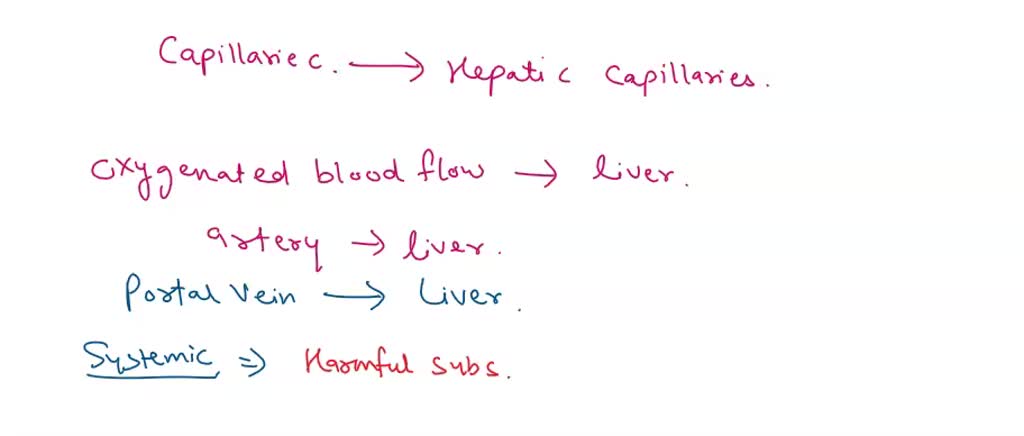 Capillaries. → Hepatic Capillaries.
Oxygenated blood flow → liver.
artery → liver.
Portal Vein → Liver.
Systemic ⇒ Harmful subs.